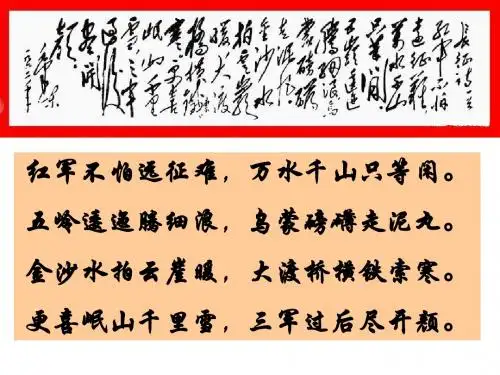 长征诗一首
红军不怕
远征难
万水千山
只等闲
五岭逶迤
腾细浪乌
蒙磅礴
走泥丸
金沙水
拍云崖
暖大渡
桥横铁索
寒更喜
岷山千里
雪三军
过后
尽开
颜
毛泽东
红军不怕远征难，万水千山只等闲。
五岭逶迤腾细浪，乌蒙磅礴走泥丸。
金沙水拍云崖暖，大渡桥横铁索寒。
更喜岷山千里雪，三军过后尽开颜。